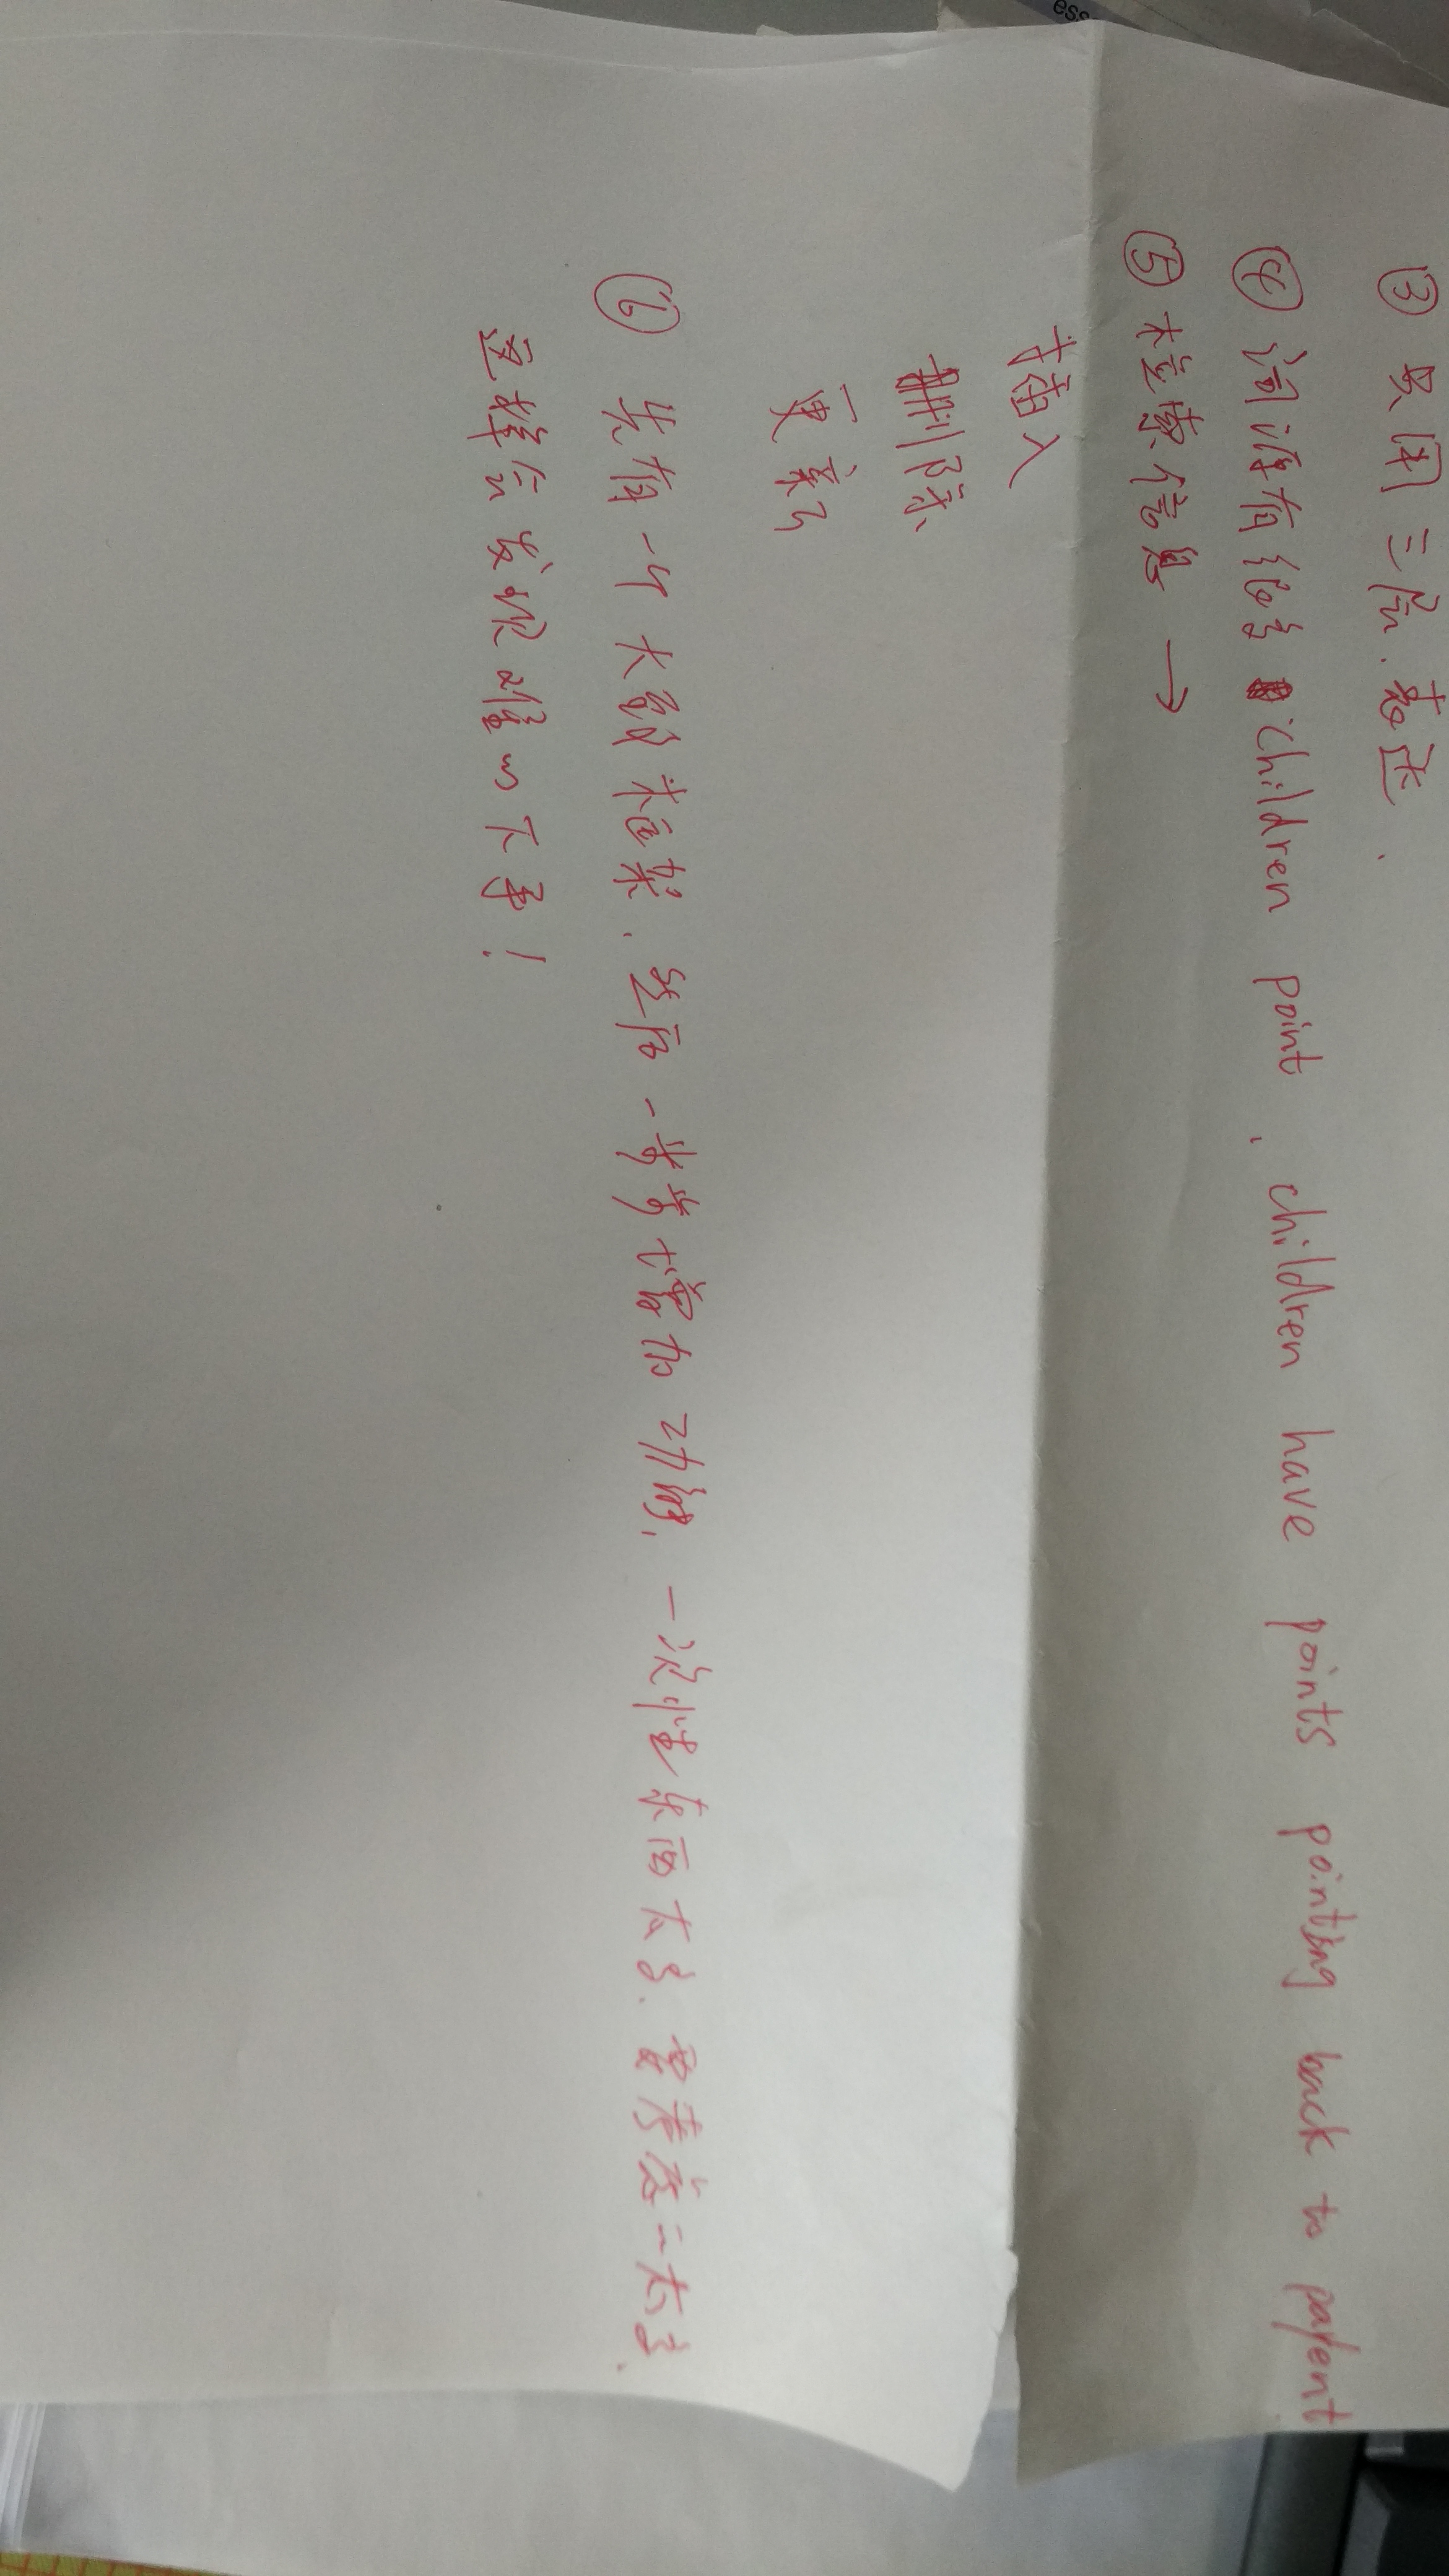 ess
③ 只用三层.表述.
④ 词源有{的} children point, children have points pointing back to parent
⑤ 检索信息 →
插入
删除
更新
⑥ 先有一个大的框架.然后一步步增加功能,一次性东西太多.要考虑一太多.
这样会发现难以下手!